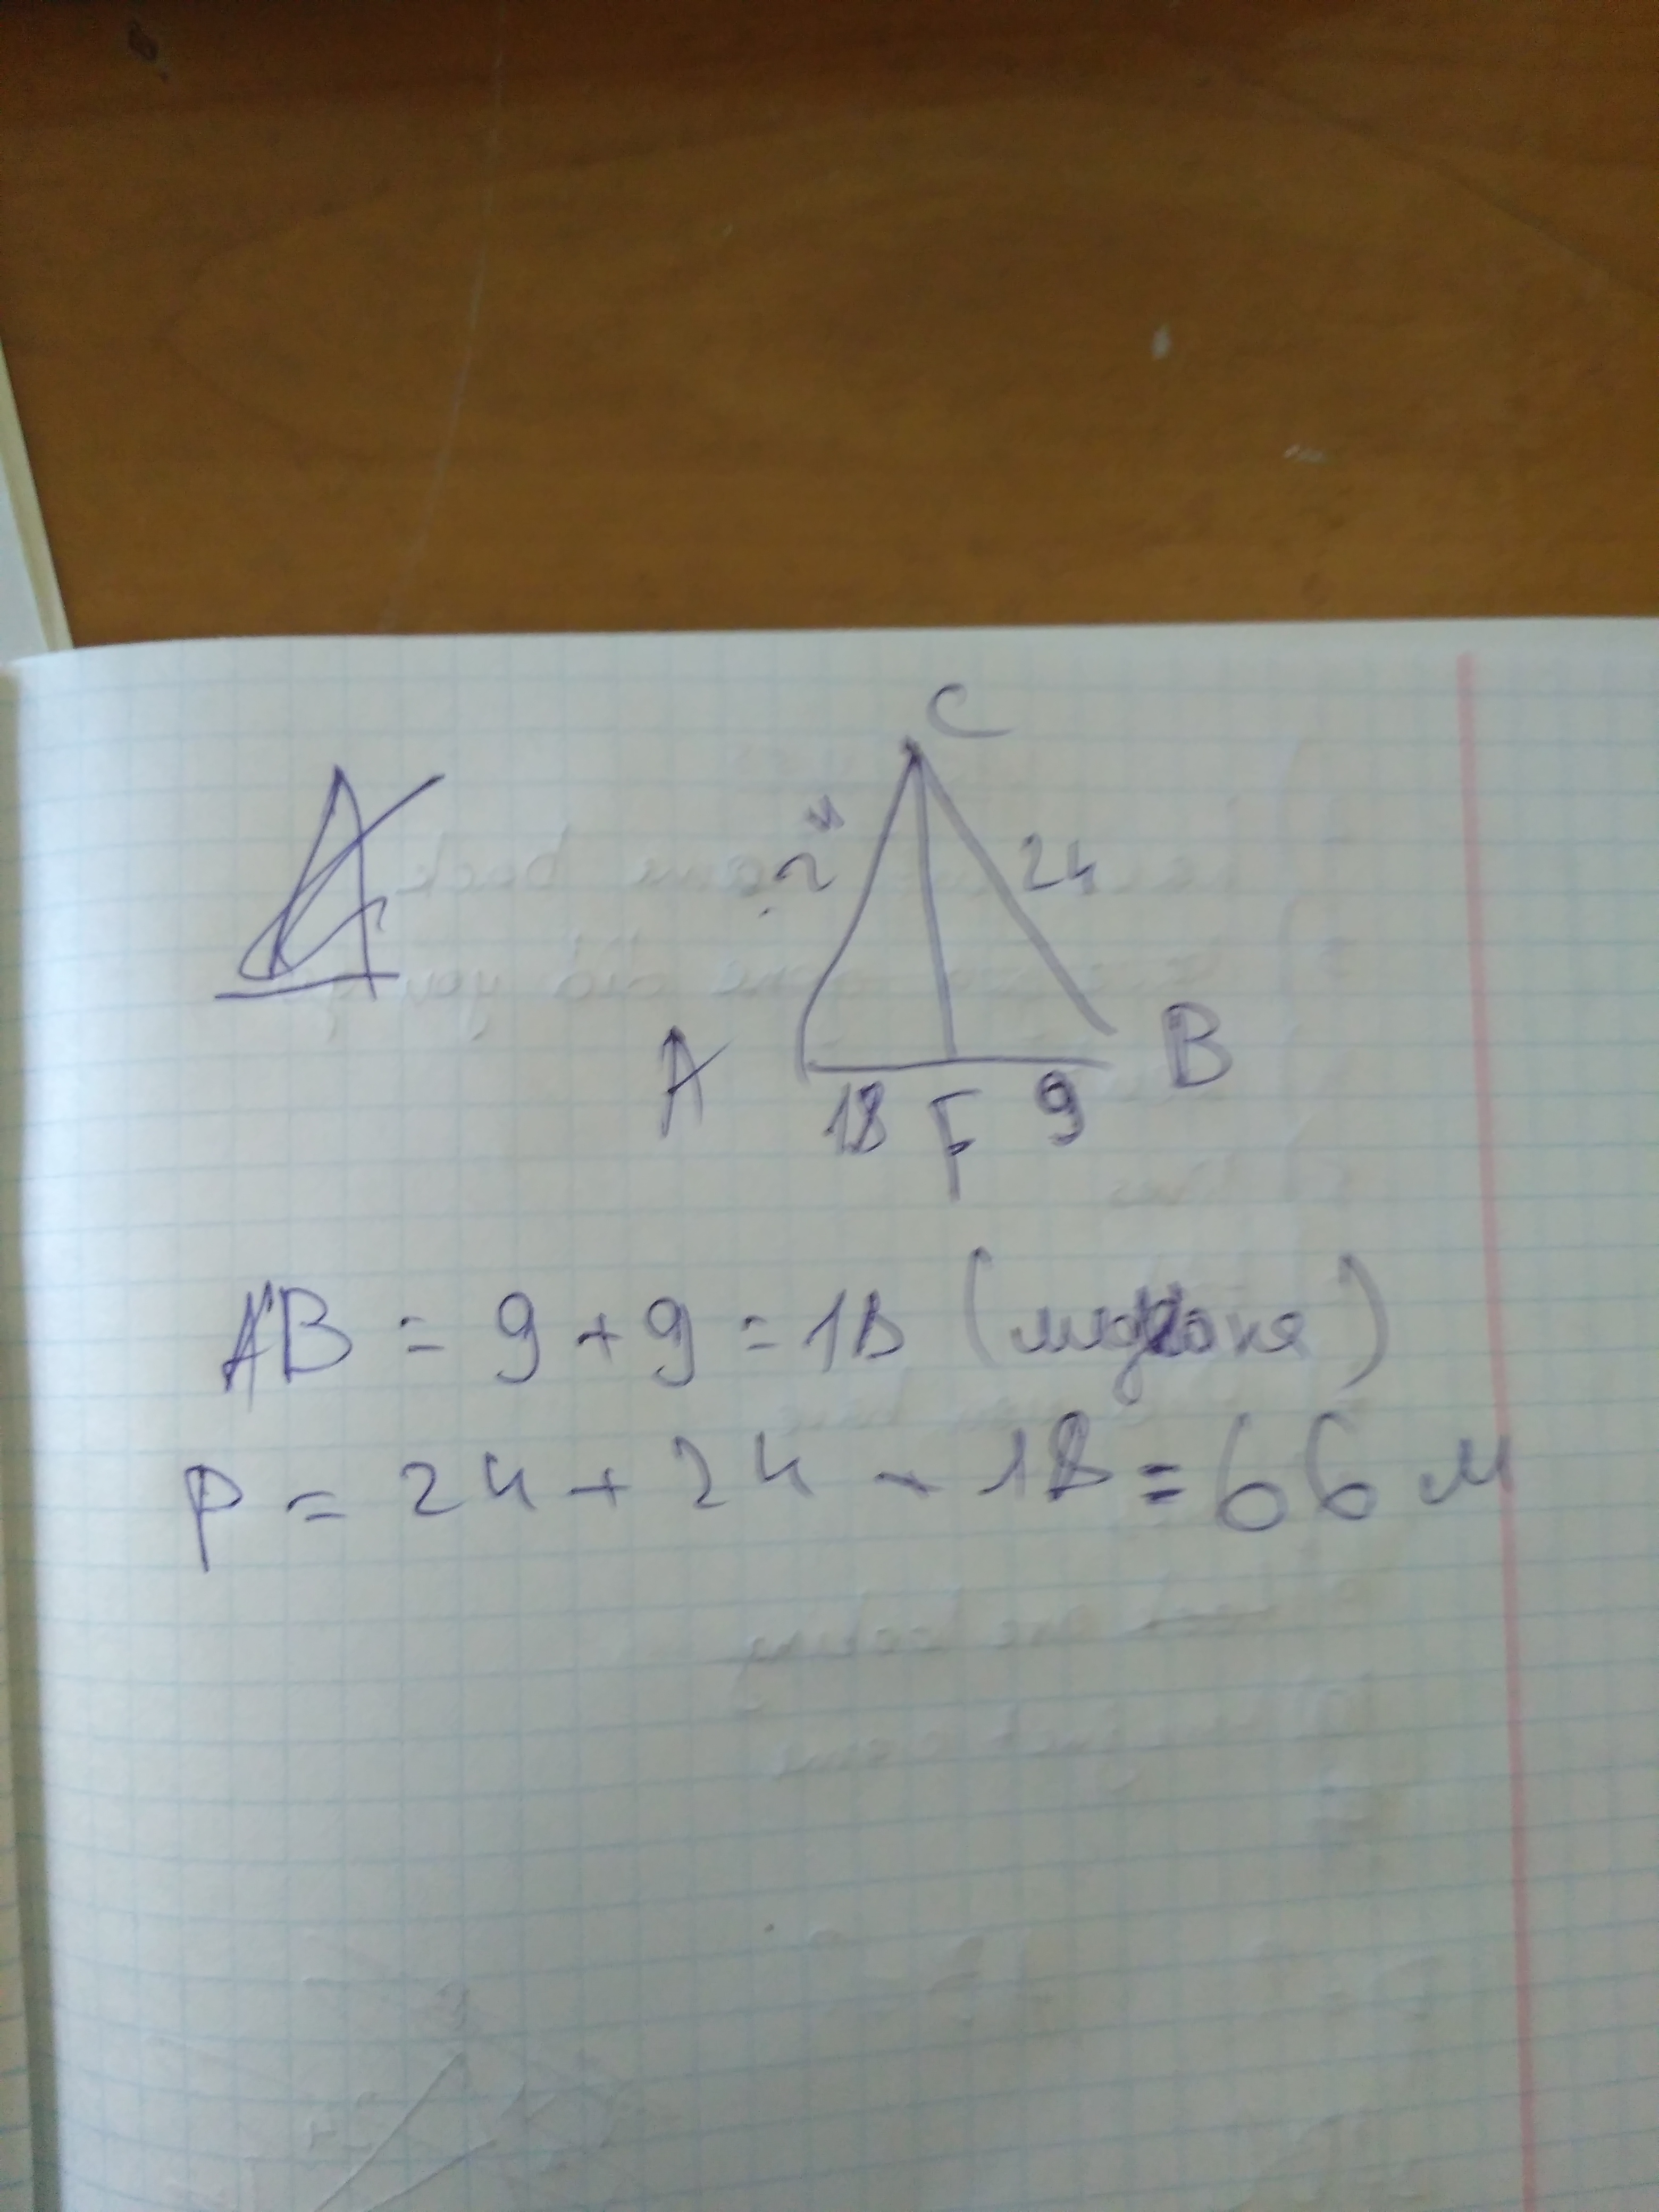 C
24 24
A B
18 F 9
AB = 9 + 9 = 18 (медіана)
P = 24 + 24 + 18 = 66 м